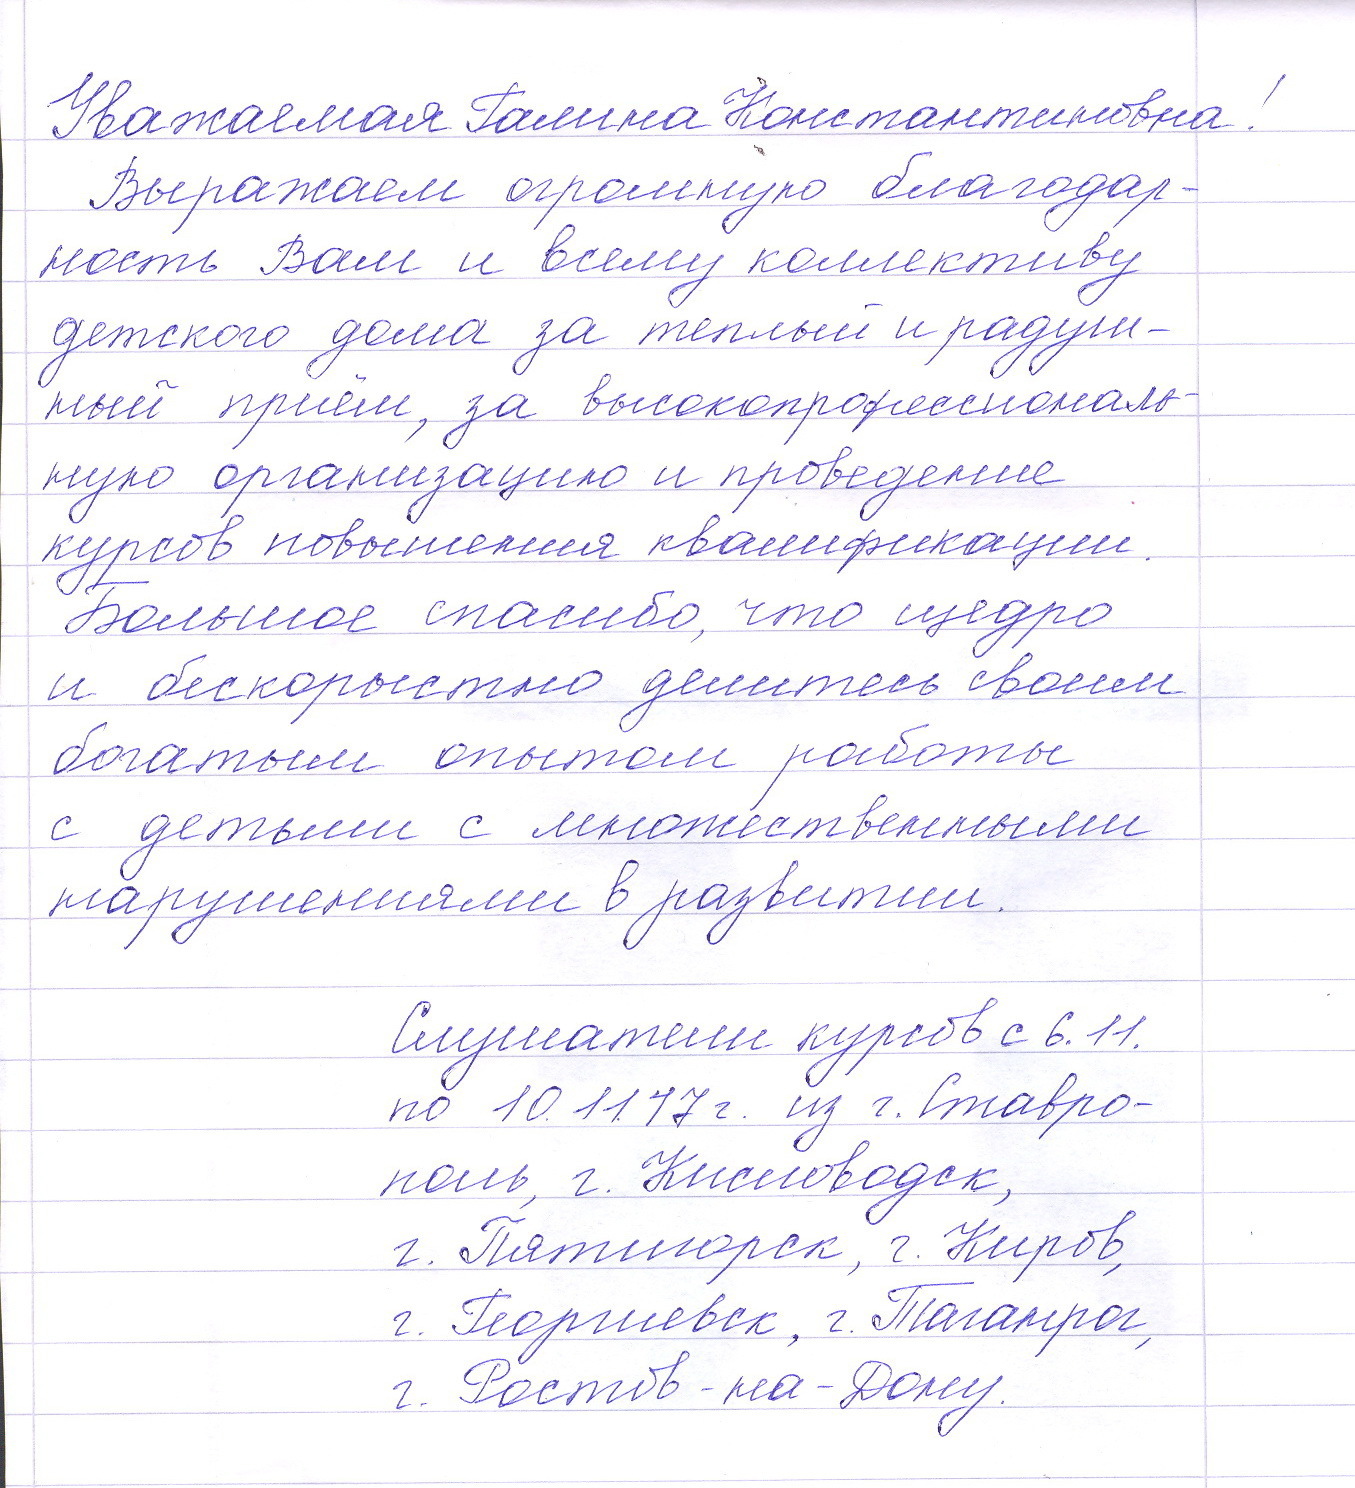 Уважаемая Галина Константиновна!
Выражаем огромную благодар-
ность Вам и всему коллективу
детского дома за теплый и радуш-
ный приём, за высокопрофессиональ-
ную организацию и проведение
курсов повышения квалификации.
Большое спасибо, что щедро
и бескорыстно делитесь своим
богатым опытом работы
с детьми с множественными
нарушениями в развитии.
Слушатели курсов с 6.11.
по 10.11.17 г. из г. Ставро-
поль, г. Кисловодск,
г. Пятигорск, г. Киров,
г. Георгиевск, г. Таганрог,
г. Ростов-на-Дону.